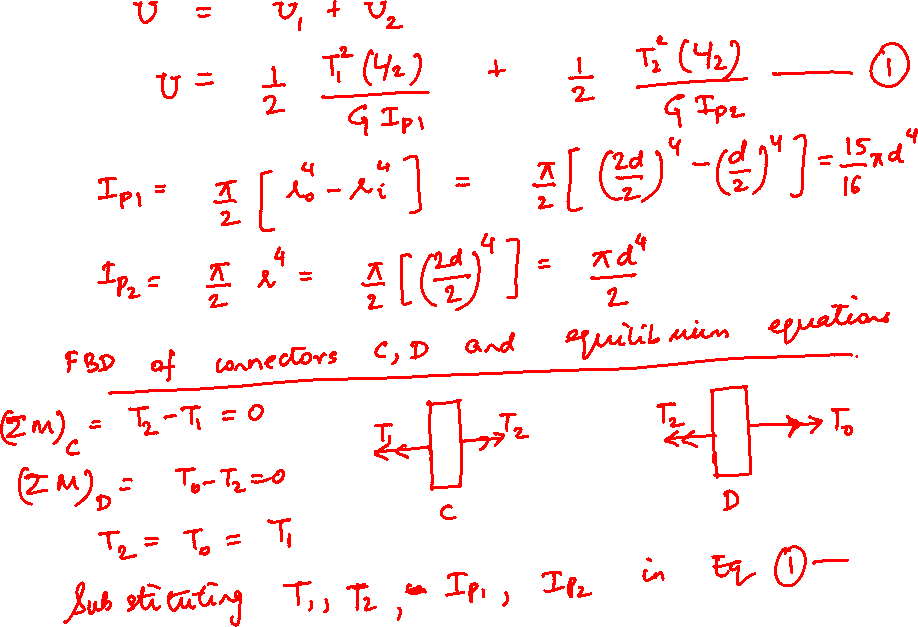 U = U₁ + U₂
U = 1/2 T₁² (L/2) / G Ip₁ + 1/2 T₂² (L/2) / G Ip₂ — ①
Ip₁ = π/2 [ r₀⁴ - rᵢ⁴ ] = π/2 [ (2d/2)⁴ - (d/2)⁴ ] = 15/16 πd⁴
Ip₂ = π/2 r⁴ = π/2 [ (2d/2)⁴ ] = πd⁴/2
FBD of connectors C, D and equilibrium equations
(ΣM)C = T₂ - T₁ = 0
T₁ T₂
T₂ T₀
(ΣM)D = T₀ - T₂ = 0
C D
T₂ = T₀ = T₁
Substituting T₁, T₂, Ip₁, Ip₂ in Eq ① —